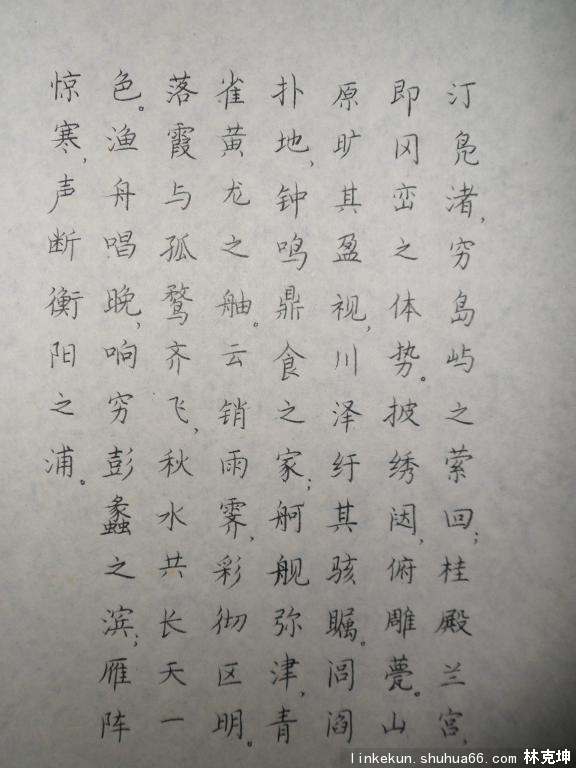 汀凫渚，穷岛屿之萦回；桂殿兰宫，
即冈峦之体势。披绣闼，俯雕甍。山
原旷其盈视，川泽纡其骇瞩。闾阎
扑地，钟鸣鼎食之家；舸舰弥津，青
雀黄龙之舳。云销雨霁，彩彻区明。
落霞与孤鹜齐飞，秋水共长天一
色。渔舟唱晚，响穷彭蠡之滨；雁阵
惊寒，声断衡阳之浦。
linkekun.shuhua66.com 林克坤